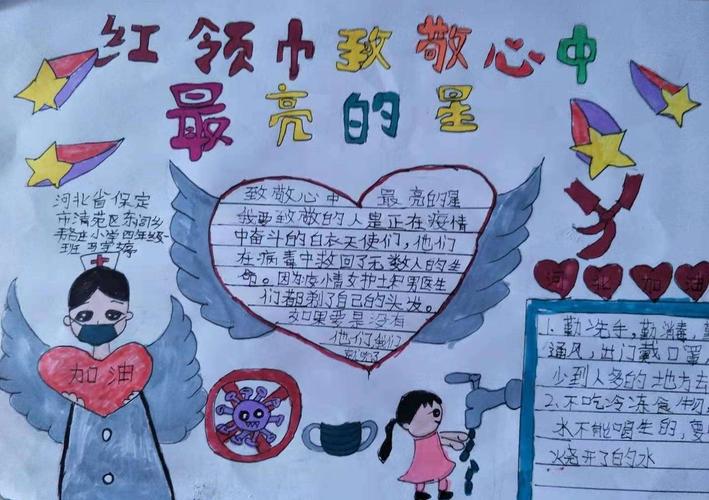 红领巾致敬心中
最亮的星
河北省保定
市清苑区东闾乡
小学四年级一
班
致敬心中 最亮的星
我要致敬的人是正在疫情
中奋斗的白衣天使们,他们
在病毒中救回了无数人的生
命。因为疫情女护士和男医生
们都剃了自己的头发。
如果要是没有
他们我们
加油
河北加油
1.勤洗手,勤消毒,
通风,出门戴口罩
少到人多的地方去
2.不吃冷冻食物,
水不能喝生的,要
烧开了的水